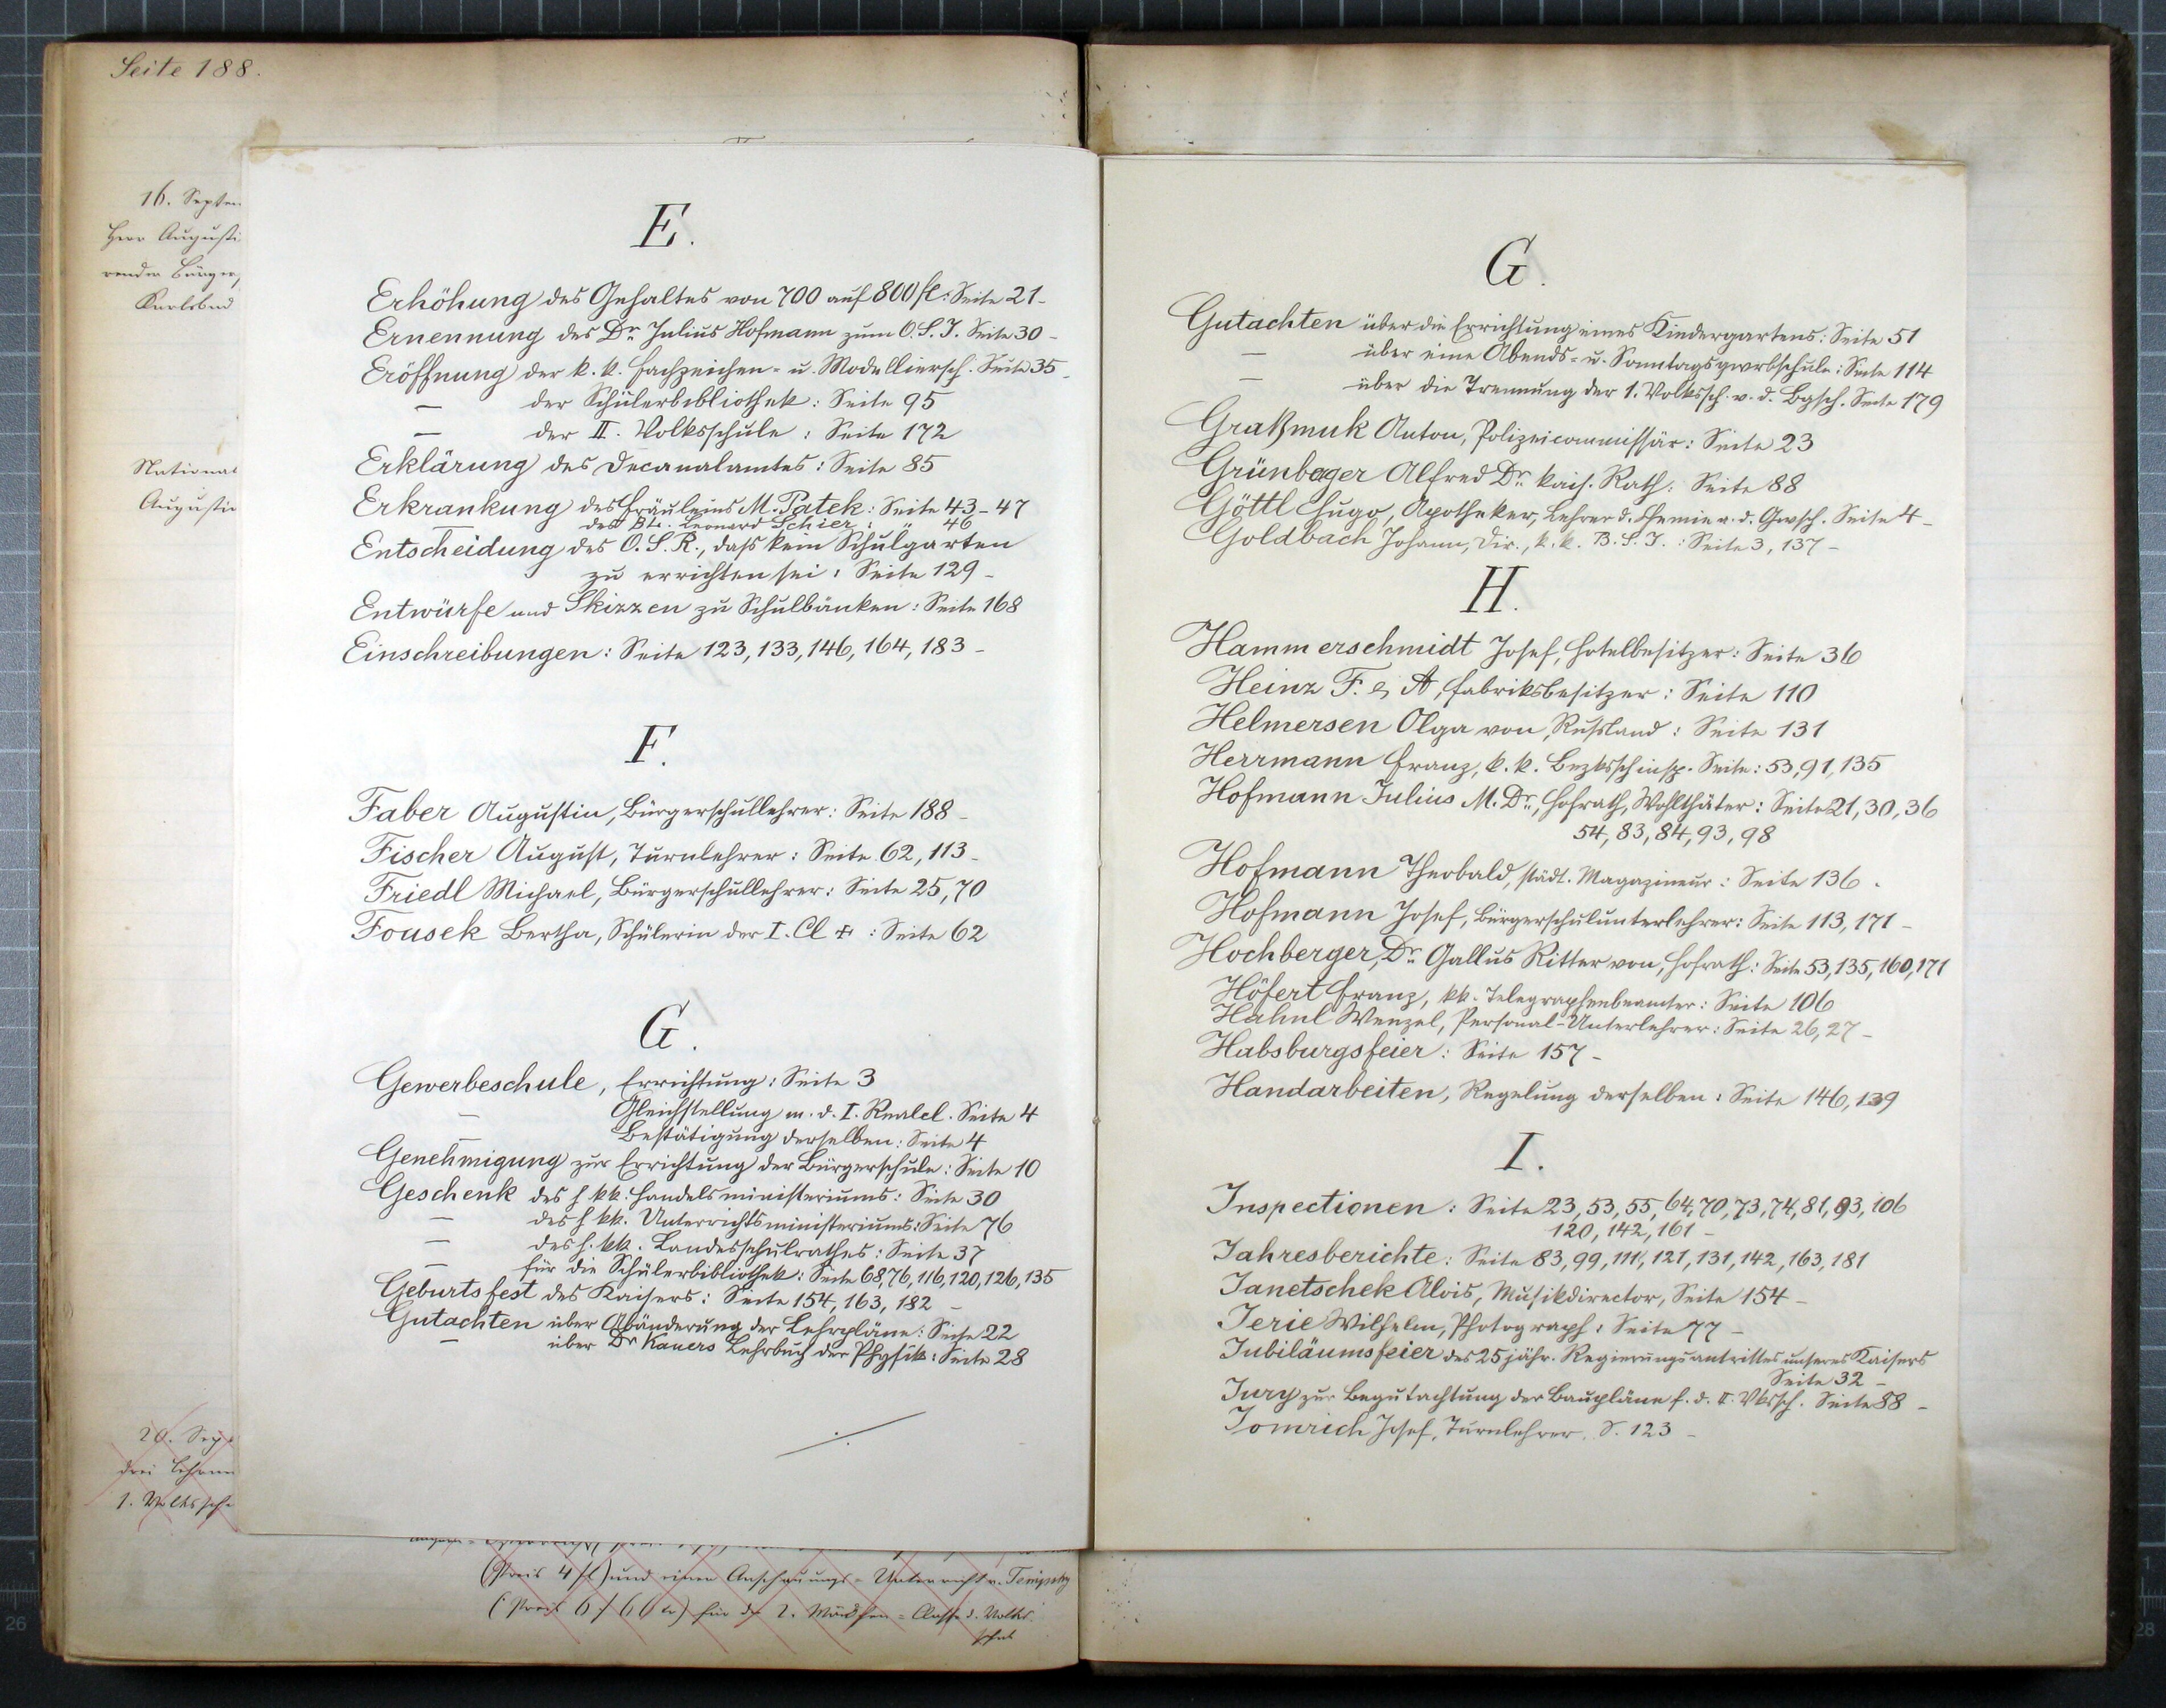 Seite 188.
16. Septem
Herr Augusti
render Bürger
Karlsbad
National
Augustin
20. Sept
drei Lehrer
1. Volkssch
E.
Erhöhung des Gehaltes von 700 auf 800 fl: Seite 21-
Ernennung des Dr. Julius Hofmann zum O.S.I. Seite 30-
Eröffnung der k.k. Fachzeichen- u. Modelliersch. Seite 35-
— der Schülerbibliothek: Seite 95
— der II. Volksschule: Seite 172
Erklärung des Decanalamtes: Seite 85
Erkrankung des Fräuleins M. Patek: Seite 43-47
des BL. Leonard Schier: " 46
Entscheidung des O.S.R., daß kein Schulgarten
zu errichten sei: Seite 129-
Entwürfe und Skizzen zu Schulbänken: Seite 168
Einschreibungen: Seite 123, 133, 146, 164, 183-
F.
Faber Augustin, Bürgerschullehrer: Seite 188-
Fischer August, Turnlehrer: Seite 62, 113-
Friedl Michael, Bürgerschullehrer: Seite 25, 70
Fousek Bertha, Schülerin der I. Cl ‡: Seite 62
G.
Gewerbeschule, Errichtung: Seite 3
— Gleichstellung m. d. I. Realcl. Seite 4
— Bestätigung derselben: Seite 4
Genehmigung zur Errichtung der Bürgerschule: Seite 10
Geschenk des h kk. Handelsministeriums: Seite 30
— des h kk. Unterrichtsministeriums: Seite 76
— des h. kk. Landesschulrathes: Seite 37
— für die Schülerbibliothek: Seite 68, 76, 116, 120, 126, 135
Geburtsfest des Kaisers: Seite 154, 163, 182-
Gutachten über Abänderung der Lehrpläne: Seite 22
— über Dr Kauers Lehrbuch der Physik: Seite 28
./.
(Preis 4 fl) und einen Anschauungs-Unterricht v. Tempsky
(Preis 6 f 60 kr) für die 2. Mädchen-Classe d. Volks
schule
G.
Gutachten über die Errichtung eines Kindergartens: Seite 51
— über eine Abends- u. Sonntagsgwrbschule: Seite 114
— über die Trennung der 1. Volkssch. v. d. Bgsch. Seite 179
Graßmuk Anton, Polizeicommissär: Seite 23
Grünbager Alfred Dr. kais. Rath: Seite 88
Göttl Hugo, Apotheker, Lehrer d. Chemie a. d. Gwsch. Seite 4-
Goldbach Johann, Dir., k.k. B.S.I.: Seite 3, 137-
H.
Hammerschmidt Josef, Hotelbesitzer: Seite 36
Heinz F. & A, Fabriksbesitzer: Seite 110
Helmersen Olga von, Russland: Seite 131
Herrmann Franz, k.k. Bezkssch insp. Seite: 53, 91, 135
Hofmann Julius M. Dr., Hofrath, Wohlthäter: Seite 21, 30, 36
54, 83, 84, 93, 98
Hofmann Theobald, städt. Magazineur: Seite 136.
Hofmann Josef, Bürgerschulunterlehrer: Seite 113, 171-
Hochberger, Dr. Gallus Ritter von, Hofrath: Seite 53, 135, 160, 171
Höfert Franz, kk. Telegraphenbeamter: Seite 106
Hahnl Wenzel, Personal-Unterlehrer: Seite 26, 27-
Habsburgsfeier: Seite 157-
Handarbeiten, Regelung derselben: Seite 146, 139
I.
Inspectionen: Seite 23, 53, 55, 64, 70, 73, 74, 81, 93, 106
120, 142, 161-
Jahresberichte: Seite 83, 99, 111, 121, 131, 142, 163, 181
Janetschek Alois, Musikdirector, Seite 154-
Jerie Wilhelm, Photograph: Seite 77-
Jubiläumsfeier des 25jähr. Regierungsantrittes unseres Kaisers
Seite 32-
Jury zur Begutachtung der Baupläne f. d. II. Vkssch. Seite 88-
Jomrich Josef, Turnlehrer. S. 123-